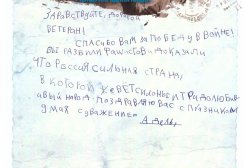 ЗДРАВСТВУЙТЕ, ДОРОГОЙ
ВЕТЕРАН!
СПАСИБО ВАМ ЗА ПОБЕДУ В ВОЙНЕ!
ВЫ РАЗБИЛИ ФАШИСТОВ И ДОКАЗАЛИ
ЧТО РОССИЯ СИЛЬНАЯ СТРАНА,
В КОТОРОЙ ЖЕВЁТ СИЛЬНЫЕ И ТРУДОЛЮБИ-
ВЫЙ НАРОД. ПОЗДРАВЛЯЮ ВАС С ПРАЗНИКОМ
9 МАЯ С УВАЖЕНИЕМ